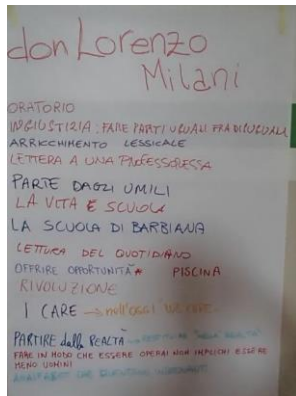 don Lorenzo
Milani
ORATORIO
INGIUSTIZIA: FARE PARTI UGUALI FRA DISUGUALI
ARRICCHIMENTO LESSICALE
LETTERA A UNA PROFESSORESSA
PARTE DAGLI UMILI
LA VITA È SCUOLA
LA SCUOLA DI BARBIANA
LETTURA DEL QUOTIDIANO
OFFRIRE OPPORTUNITÀ PISCINA
RIVOLUZIONE
I CARE → nell'oggi
PARTIRE dalla REALTÀ
FARE IN MODO CHE ESSERE OPERAI NON IMPLICHI ESSERE
MENO UOMINI
ANALFABETI CHE DIVENTANO INSEGNANTI